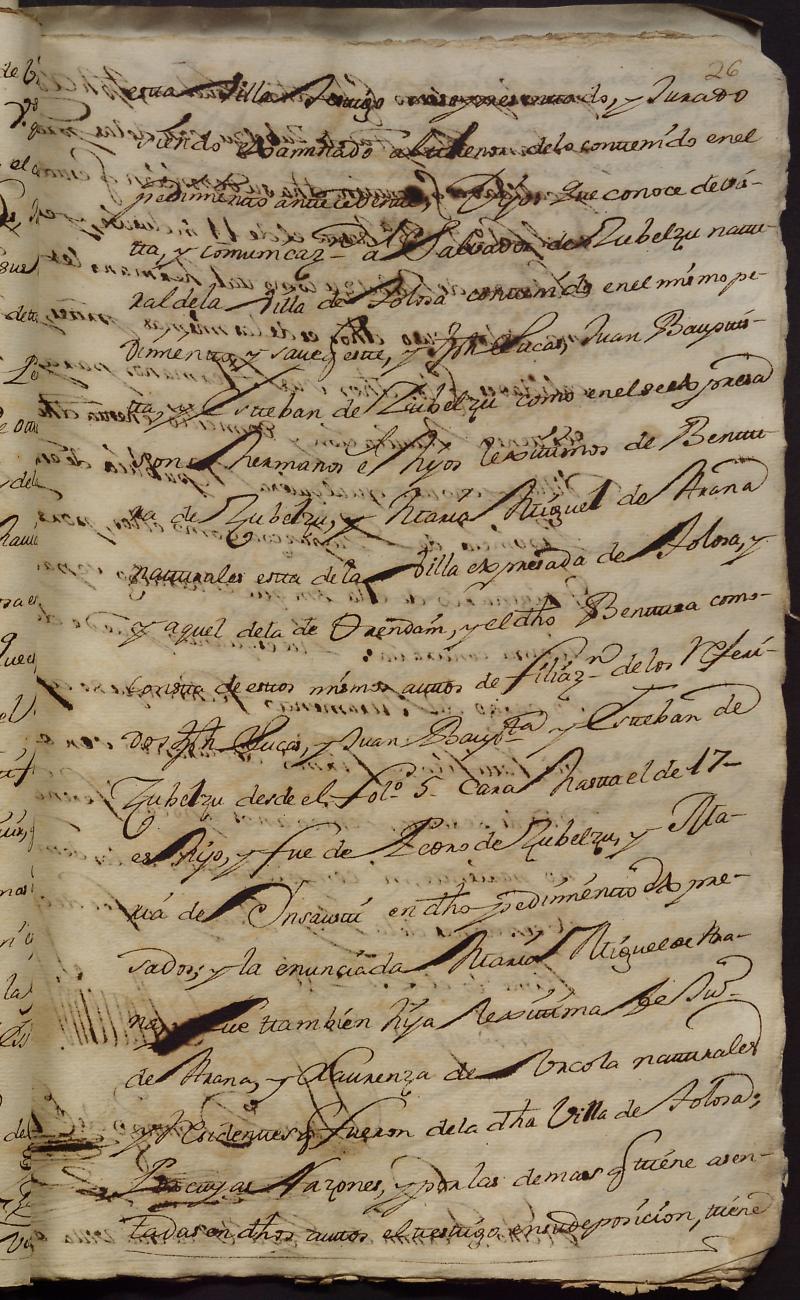 26
esta Villa testigo assi presentado, y Jurado
siendo examinado al thenor delo contenido enel
pedimento antecedente, Dijo, Que conoce devis-
tta, y comunicaz.n a Salvador de Zubelzu natu-
ral dela Villa de Tolosa contenido enel mismo pe-
dimento, y save q este, y Jph Lucas, Juan Baupttis-
tta, y Esteban de Zubelzu como enel se expresa
son hermanos é hijos lexittimos de Bentu-
ra de Zubelzu, y Maria Miguel de Arana
naturales esta dela Villa expresada de Tolosa, y
y aquel dela de Orendain, y el dho Bentura como
consta de estos mismos autos de filiaz.n de los Referi-
dos Jph Lucas, y Juan Baup.tta y Esteban de
Zubelzu desde el fol.o 5 Cara hasta el de 17
es hijo, y fue de Pedro de Zubelzu, y Ma-
ria de Insausti en dho pedimento expre-
sados, y la enunciada Maria Miguel de Ara-
na, fué ttambien hija lexittima de Ju.n
de Arana, y Laurenza de Urcola naturales
y Residentes q fueron dela dha Villa de Tolosa;
Por cuyas Razones, y por las demas q tiene asen-
tadas en dhos autos el testigo en su deposicion, tiene